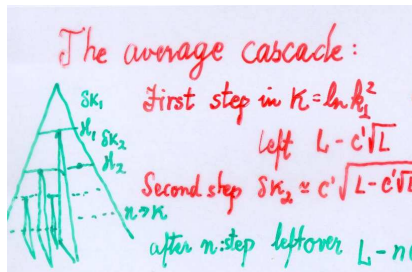 The average cascade:
δK₁
First step in K = ln k₁²
ℋ₁ δK₂
left L - c'√L
ℋ₂
Second step δK₂ ≃ c'√L - c'√L
n → K
after n: step leftover L - n